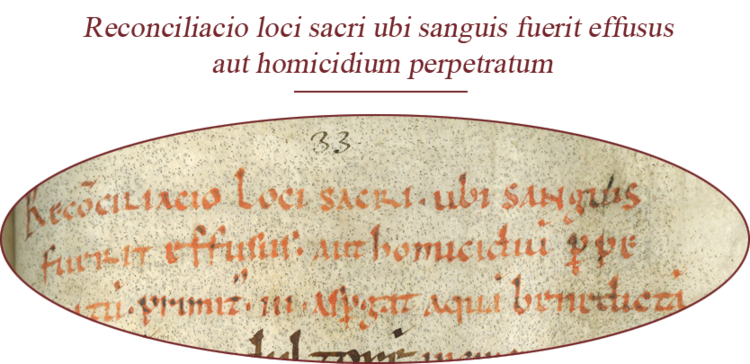 Reconciliacio loci sacri ubi sanguis fuerit effusus
aut homicidium perpetratum
33
Recōciliacio loci sacri. ubi sanguis
fuerit effusus. aut homicidiū ꝑpe
aquā benedictā